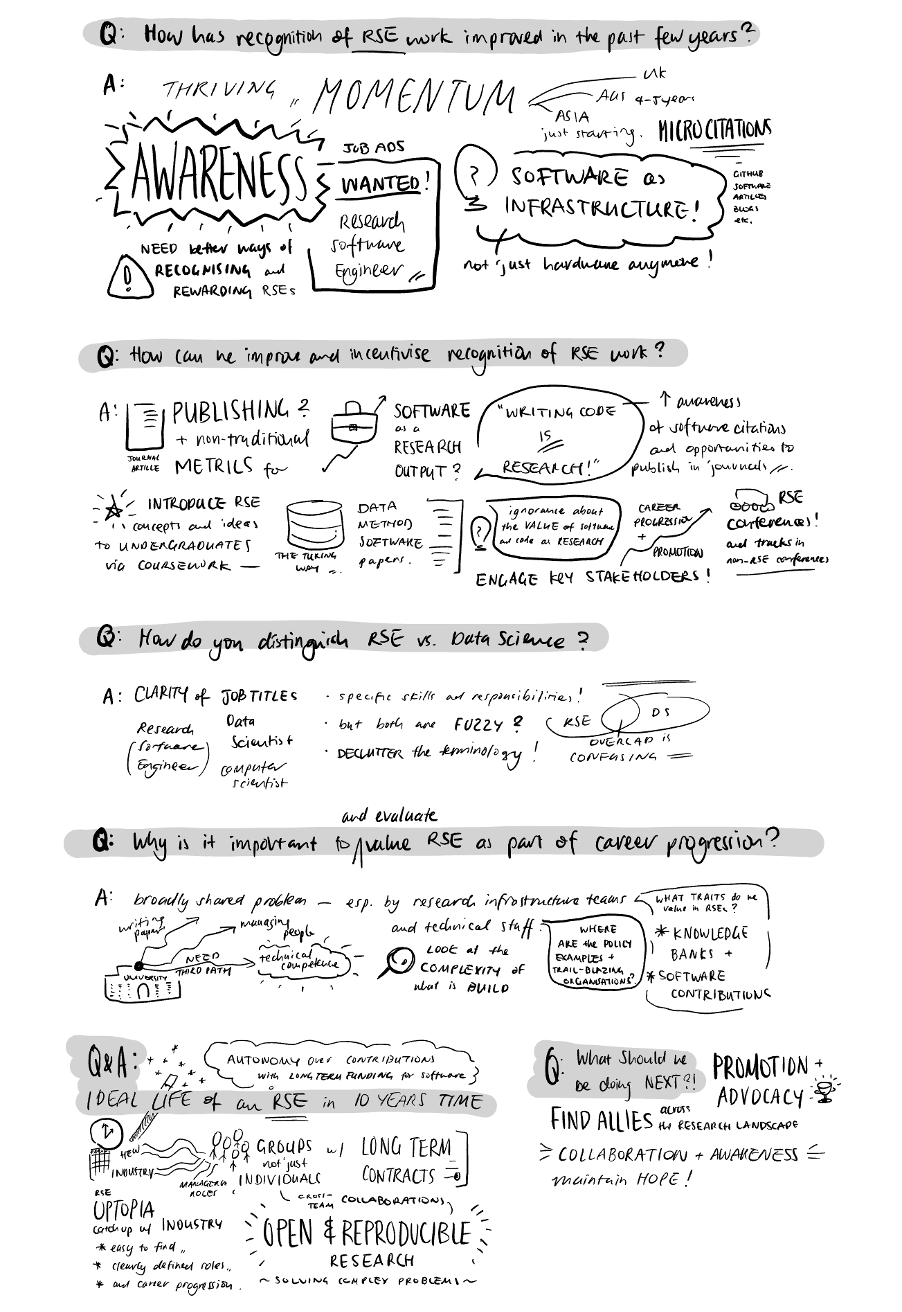 Q: How has recognition of RSE work improved in the past few years?
A: THRIVING MOMENTUM
UK
AUS 4-5 years
ASIA
just starting.
MICROCITATIONS
GITHUB
SOFTWARE
ARTICLES
BLOGS
etc.
AWARENESS
JOB ADS
WANTED!
Research
Software
Engineer
?
SOFTWARE as
INFRASTRUCTURE!
not just hardware anymore!
!
NEED better ways of
RECOGNISING and
REWARDING RSEs
Q: How can we improve and incentivise recognition of RSE work?
A:
JOURNAL
ARTICLE
PUBLISHING?
+ non-traditional
METRICS for
SOFTWARE
as a
RESEARCH
OUTPUT?
"WRITING CODE
IS
RESEARCH!"
↑ awareness
of software citations
and opportunities to
publish in journals
INTRODUCE RSE
concepts and ideas
to UNDERGRADUATES
via COURSEWORK —
THE TURING
WAY
DATA
METHOD
SOFTWARE
papers.
?
ignorance about
the VALUE of software
and code as RESEARCH
CAREER
PROGRESSION
+
PROMOTION
ENGAGE KEY STAKEHOLDERS!
RSE
conferences!
and tracks in
non-RSE conferences
Q: How do you distinguish RSE vs. Data Science?
A: CLARITY of JOB TITLES
Research
Software
Engineer
Data
Scientist
computer
scientist
· specific skills and responsibilities!
· but both are FUZZY?
· DECLUTTER the terminology!
RSE
DS
OVERLAP IS
CONFUSING
and evaluate
Q: Why is it important to value RSE as part of career progression?
A: broadly shared problem — esp. by research infrastructure teams
and technical staff.
writing
papers
managing
people
NEED
THIRD PATH
technical
competence
UNIVERSITY
LOOK at the
COMPLEXITY of
what is BUILD
WHERE
ARE the POLICY
EXAMPLES +
TRAIL-BLAZING
ORGANISATIONS?
WHAT TRAITS do we
value in RSEs?
* KNOWLEDGE
BANKS +
* SOFTWARE
CONTRIBUTIONS
Q&A:
AUTONOMY over CONTRIBUTIONS
with LONG TERM FUNDING for software
IDEAL LIFE of an RSE in 10 YEARS TIME
NEW
INDUSTRY
MANAGERIAL
ROLES
GROUPS w/
not just
INDIVIDUALS
LONG TERM
CONTRACTS
CROSS-
TEAM COLLABORATIONS
RSE
UPTOPIA
catch up w/ INDUSTRY
* easy to find
* clearly defined roles
* and career progression.
OPEN & REPRODUCIBLE
RESEARCH
~ SOLVING COMPLEX PROBLEMS ~
Q: What Should we
be doing NEXT?!
PROMOTION +
ADVOCACY
FIND ALLIES across
the RESEARCH LANDSCAPE
COLLABORATION + AWARENESS
maintain HOPE!